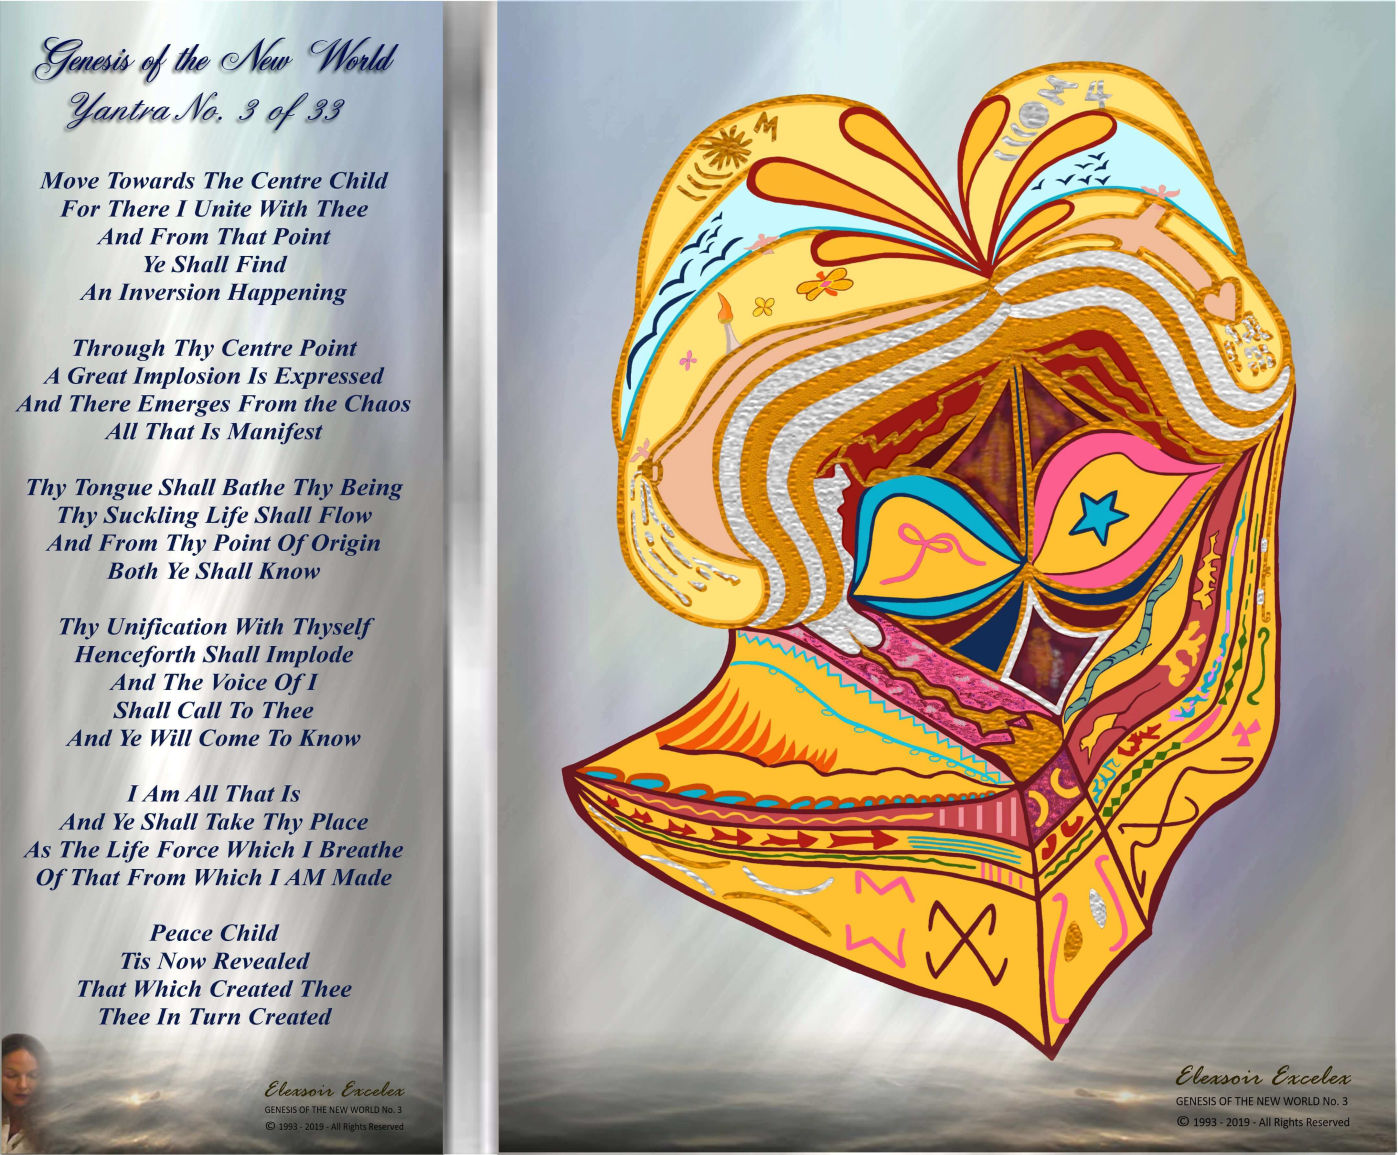 Genesis of the New World
Yantra No. 3 of 33
Move Towards The Centre Child
For There I Unite With Thee
And From That Point
Ye Shall Find
An Inversion Happening
Through Thy Centre Point
A Great Implosion Is Expressed
And There Emerges From the Chaos
All That Is Manifest
Thy Tongue Shall Bathe Thy Being
Thy Suckling Life Shall Flow
And From Thy Point Of Origin
Both Ye Shall Know
Thy Unification With Thyself
Henceforth Shall Implode
And The Voice Of I
Shall Call To Thee
And Ye Will Come To Know
I Am All That Is
And Ye Shall Take Thy Place
As The Life Force Which I Breathe
Of That From Which I AM Made
Peace Child
Tis Now Revealed
That Which Created Thee
Thee In Turn Created
Elexsoir Excelex
GENESIS OF THE NEW WORLD No. 3
© 1993 - 2019 - All Rights Reserved
Elexsoir Excelex
GENESIS OF THE NEW WORLD No. 3
© 1993 - 2019 - All Rights Reserved